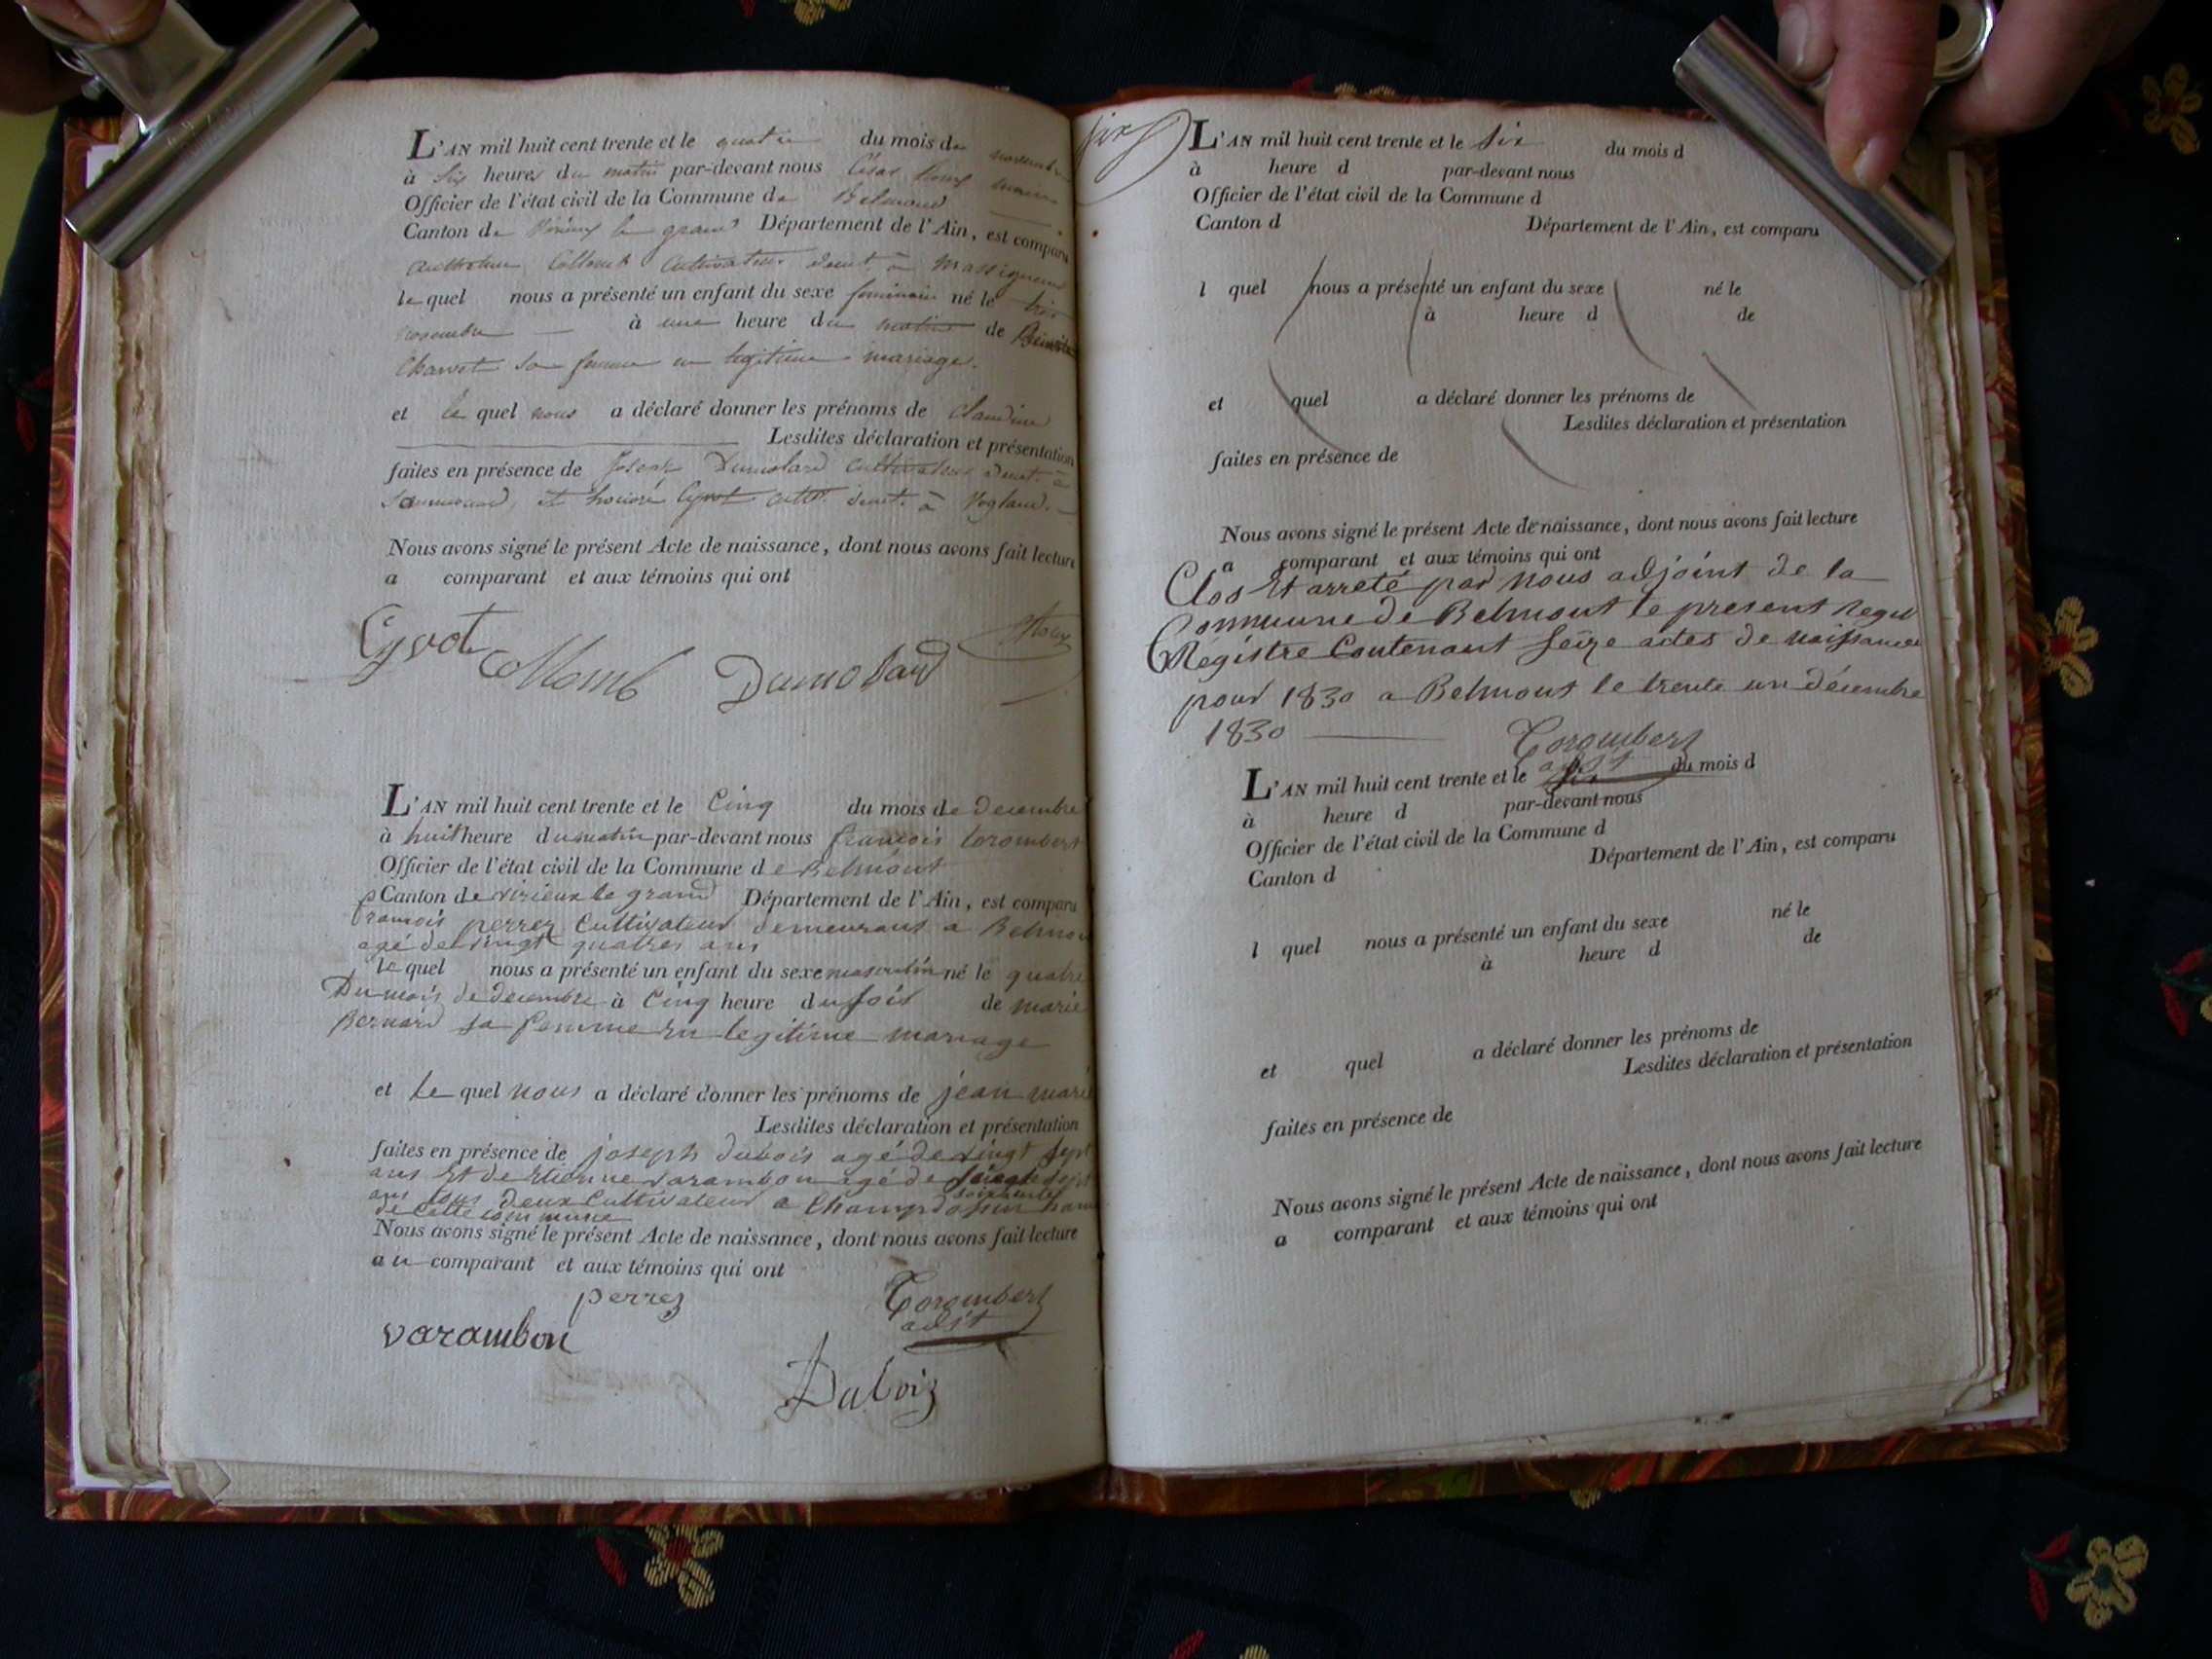 L'AN mil huit cent trente et le quatre du mois de novembre
à six heures du matin par-devant nous César maire
Officier de l'état civil de la Commune de Belmond
Canton de le grand Département de l'Ain, est comparu
Anthelme Collomb Cultivateur demt. à Massignieu
lequel nous a présenté un enfant du sexe feminin né le trois
novembre à une heure du matin de Benoite
Charvet sa femme en legitime mariage.
et le quel nous a déclaré donner les prénoms de Claudine
Lesdites déclaration et présentation
faites en présence de Joseph Dumolard cultivateur demt. à
et honoré Cyvot cultr. demt. à Vogland.
Nous avons signé le présent Acte de naissance, dont nous avons fait lecture
a comparant et aux témoins qui ont
Cyvot Collomb Dumolard
L'AN mil huit cent trente et le Cinq du mois de decembre
à huit heure du matin par-devant nous françois Corombert
Officier de l'état civil de la Commune de Belmont
Canton de virieux le grand Département de l'Ain, est comparu
françois perrez Cultivateur demeurant a Belmon
agé de vingt quatres ans
le quel nous a présenté un enfant du sexe masculin né le quatre
Du mois de decembre à Cinq heure du soir de marie
Bernard sa femme En legitime mariage
et Le quel nous a déclaré donner les prénoms de jean marie
Lesdites déclaration et présentation
faites en présence de joseph dubois agé de vingt sept
ans Et de Etienne Varambon agé de sept
soixante
ans tous deux Cultivateur a Champdossin
de Cette commune
Nous avons signé le présent Acte de naissance, dont nous avons fait lecture
au comparant et aux témoins qui ont
perrez
Corombert
adjt
varambon
Duboiz
six
L'AN mil huit cent trente et le Six du mois d
à heure d par-devant nous
Officier de l'état civil de la Commune d
Canton d Département de l'Ain, est comparu
l quel nous a présenté un enfant du sexe né le
à heure d de
et quel a déclaré donner les prénoms de
Lesdites déclaration et présentation
faites en présence de
Nous avons signé le présent Acte de naissance, dont nous avons fait lecture
a comparant et aux témoins qui ont
Clos Et arreté par nous adjoint de la
Commune de Belmont le present
Régistre Contenant seize actes de naissance
pour 1830 a Belmont le trente un décembre
1830
Corombert
adjt
L'AN mil huit cent trente et le du mois d
à heure d par-devant nous
Officier de l'état civil de la Commune d
Canton d Département de l'Ain, est comparu
l quel nous a présenté un enfant du sexe né le
à heure d de
et quel a déclaré donner les prénoms de
Lesdites déclaration et présentation
faites en présence de
Nous avons signé le présent Acte de naissance, dont nous avons fait lecture
a comparant et aux témoins qui ont